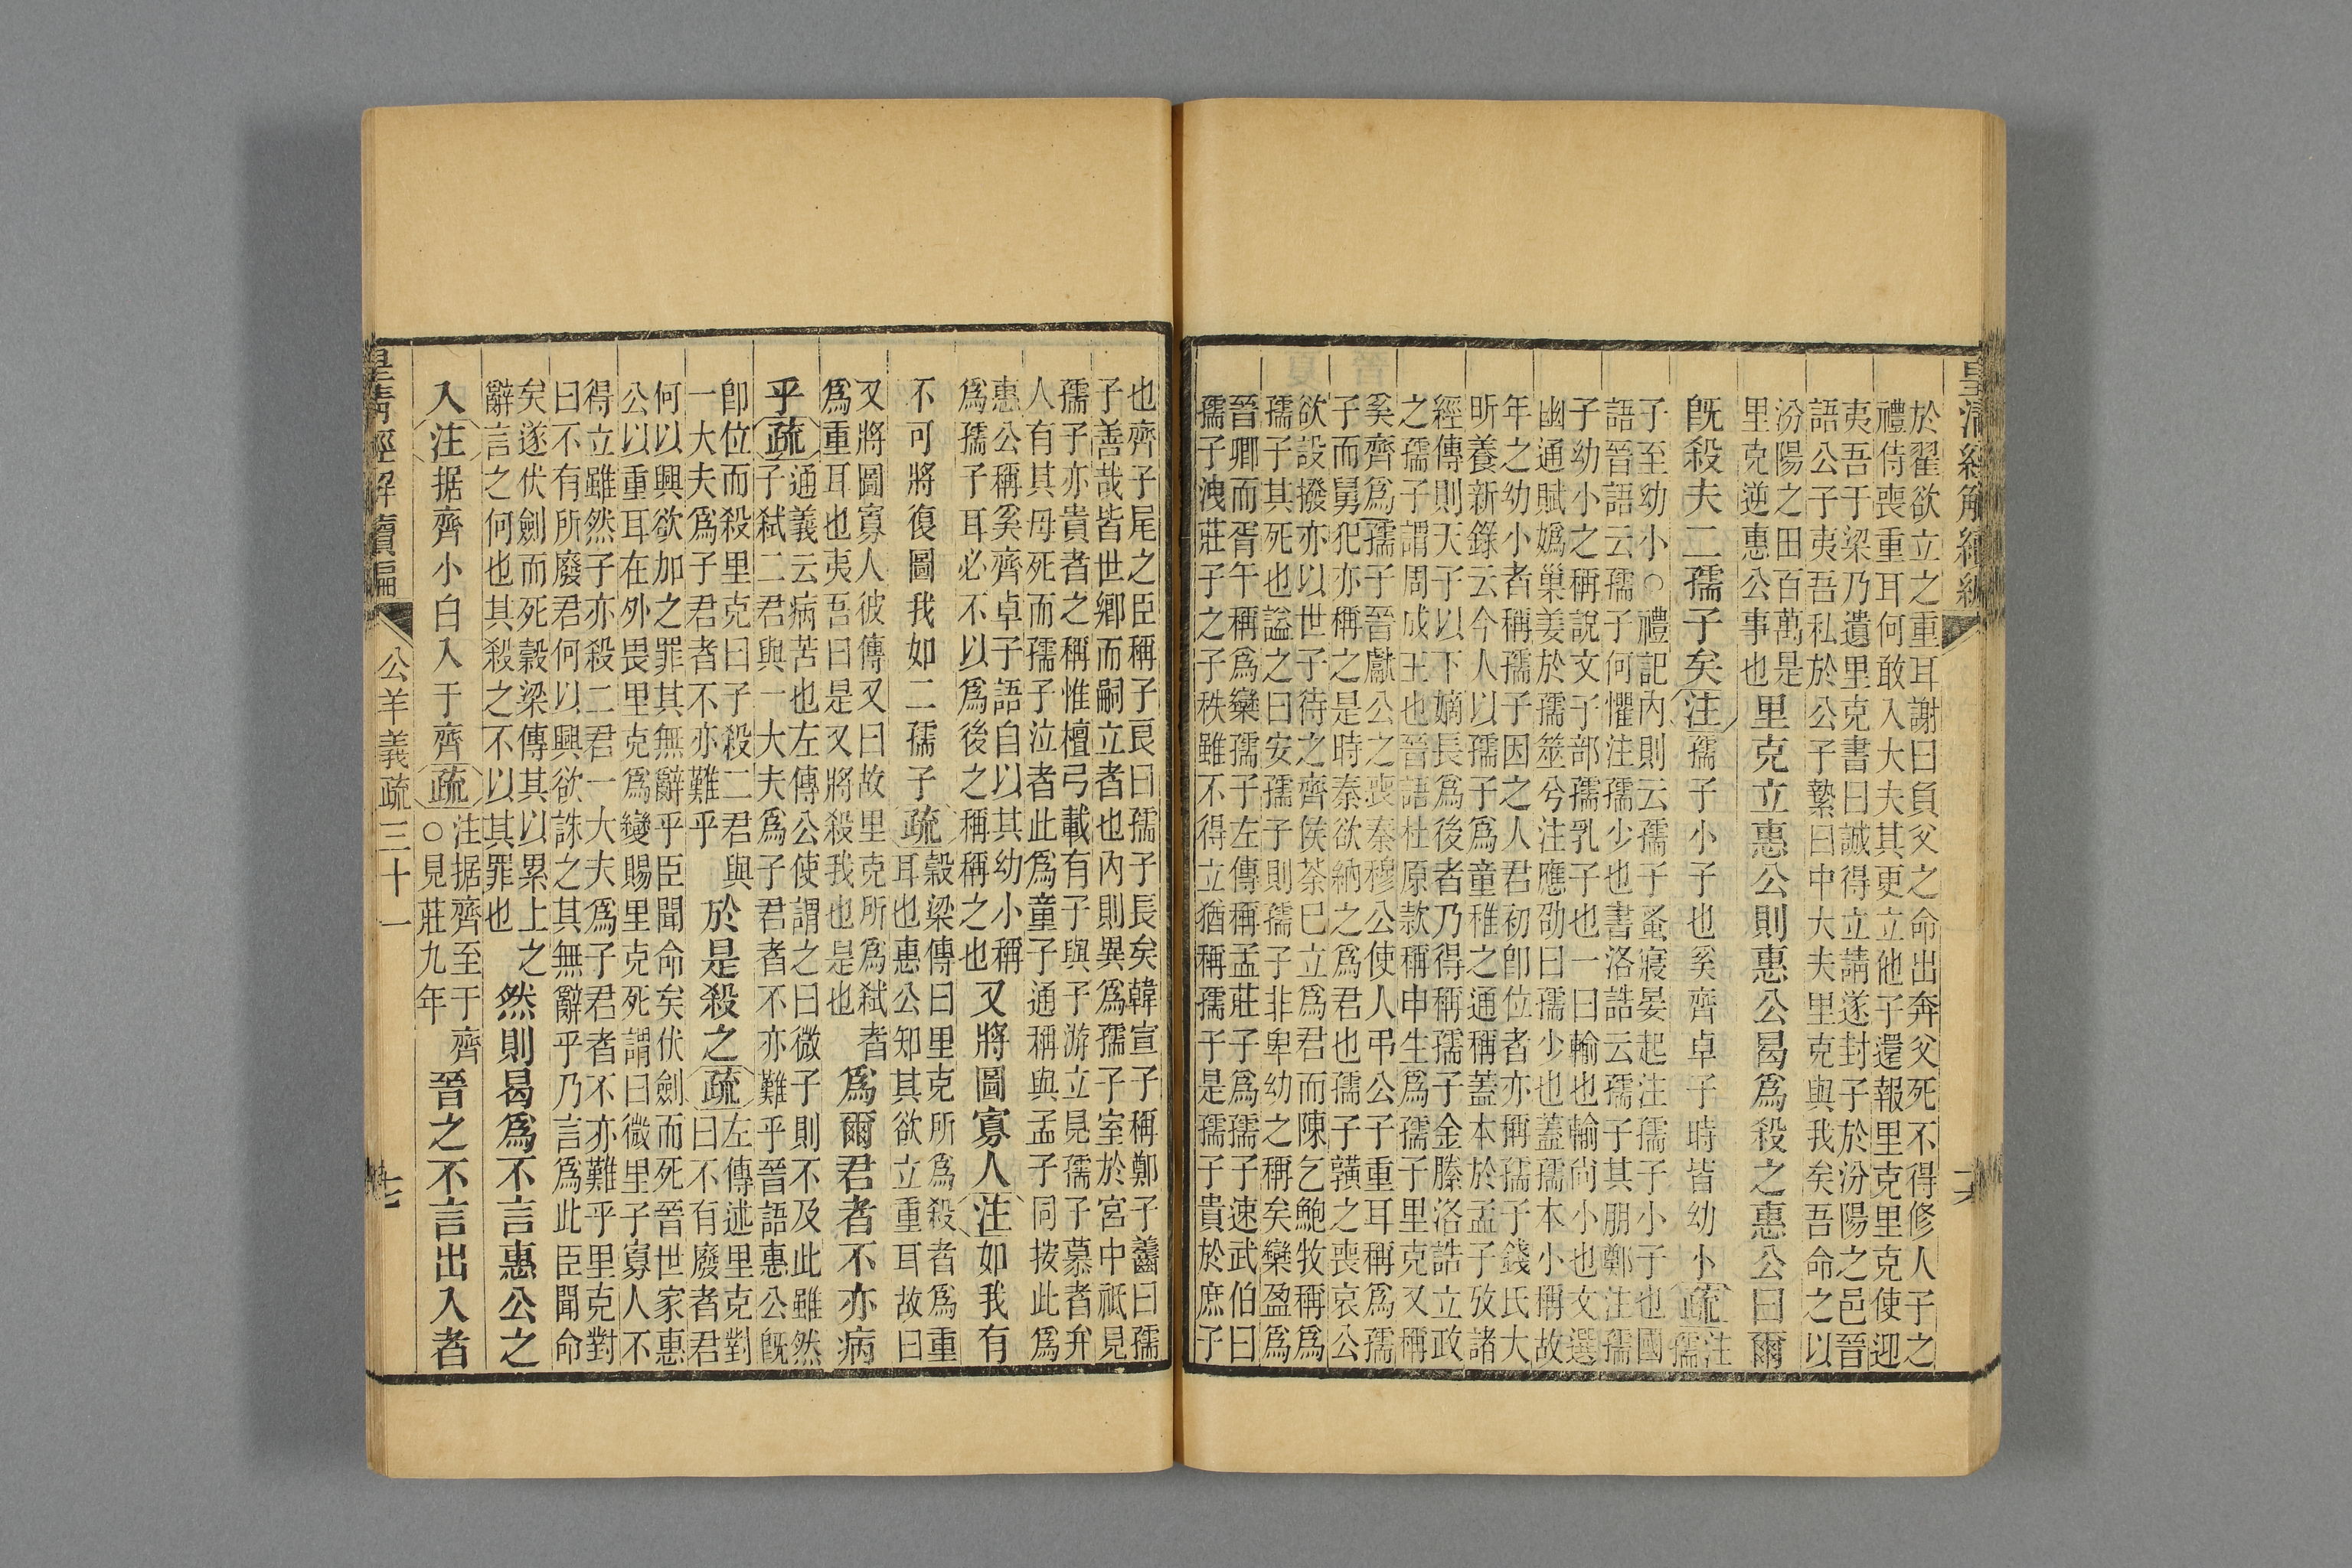 皇清經解續編 十六
於翟欲立之重耳謝曰負父之命出奔父死不得修人子之
禮侍喪重耳何敢入大夫其更立他子還報里克里克使迎
夷吾于梁乃遺里克書曰誠得立請遂封子於汾陽之邑晉
語公子夷吾私於公子縶曰中大夫里克與我矣吾命之以
汾陽之田百萬是
里克逆惠公事也
里克立惠公則惠公曷爲殺之惠公曰爾
旣殺夫二孺子矣注孺子小子也奚齊卓子時皆幼小疏注孺
子至幼小○禮記內則云孺子蚤寢晏起注孺子小子也國
語晉語云孺子何懼注孺少也書洛誥云孺子其朋鄭注孺
子幼小之稱說文子部孺乳子也一曰輸也輸尙小也文選
幽通賦嬀巢姜於孺筮兮注應劭曰孺少也蓋孺本小稱故
年之幼小者稱孺子因之人君初卽位者亦稱孺子錢氏大
昕養新錄云今人以孺子爲童稚之通稱蓋本於孟子攷諸
經傳則天子以下嫡長爲後者乃得稱孺子金縢洛誥立政
之孺子謂周成王也晉語杜原款稱申生爲孺子里克又稱
奚齊爲孺子晉獻公之喪秦穆公使人弔公子重耳稱爲孺
子而舅犯亦稱之是時秦欲納之爲君也孺子䵍之喪哀公
欲設撥亦以世子待之齊侯荼已立爲君而陳乞鮑牧稱爲
孺子其死也謚之曰安孺子則孺子非卑幼之稱矣欒盈爲
晉卿而胥午稱爲欒孺子左傳稱孟莊子爲孺子速武伯曰
孺子洩莊子之子秩雖不得立猶稱孺子是孺子貴於庶子
也齊子尾之臣稱子良曰孺子長矣韓宣子稱鄭子齹曰孺
子善哉皆世卿而嗣立者也內則異爲孺子室於宮中祇見
孺子亦貴者之稱惟檀弓載有子與子游立見孺子慕者弁
人有其母死而孺子泣者此爲童子通稱與孟子同按此爲
惠公稱奚齊卓子語自以其幼小稱
爲孺子耳必不以爲後之稱稱之也
又將圖寡人注如我有
不可將復圖我如二孺子疏穀梁傳曰里克所爲殺者爲重
耳也惠公知其欲立重耳故曰
又將圖寡人彼傳又曰故里克所爲弒者
爲重耳也夷吾曰是又將殺我也是也
爲爾君者不亦病
乎疏通義云病苦也左傳公使謂之曰微子則不及此雖然
子弒二君與一大夫爲子君者不亦難乎晉語惠公旣
卽位而殺里克曰子殺二君與
一大夫爲子君者不亦難乎
於是殺之疏左傳述里克對
曰不有廢者君
何以興欲加之罪其無辭乎臣聞命矣伏劍而死晉世家惠
公以重耳在外畏里克爲變賜里克死謂曰微里子寡人不
得立雖然子亦殺二君一大夫爲子君者不亦難乎里克對
曰不有所廢君何以興欲誅之其無辭乎乃言爲此臣聞命
矣遂伏劍而死穀梁傳其以累上之
辭言之何也其殺之不以其罪也
然則曷爲不言惠公之
入注据齊小白入于齊疏注据齊至于齊
○見莊九年
晉之不言出入者
皇清經解續編 公羊義疏三十一 十七